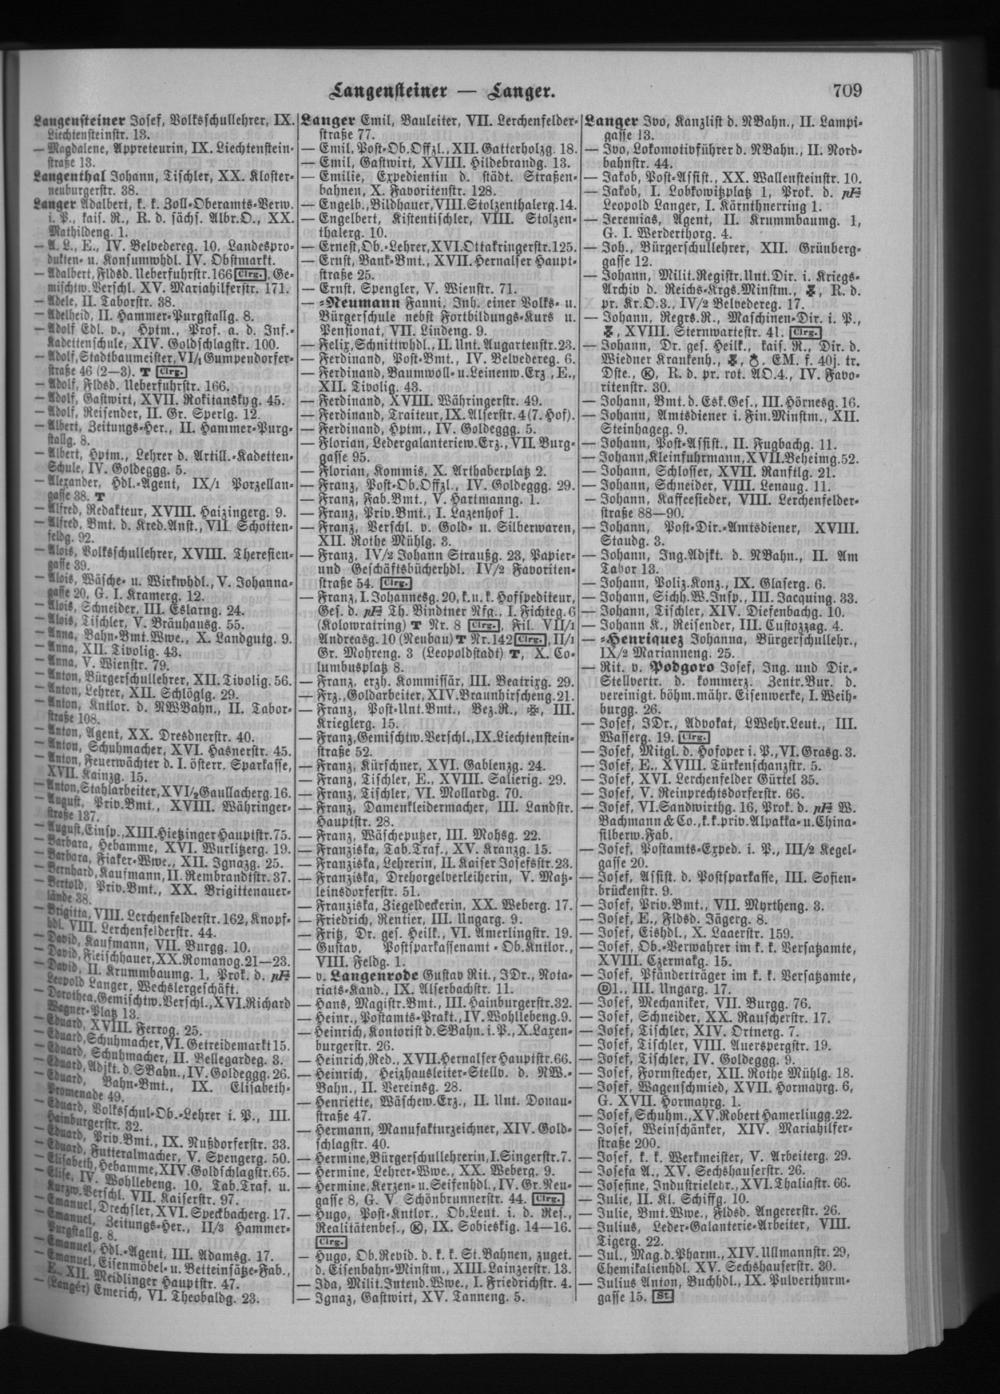 Langensteiner — Langer.
709
Langensteiner Josef, Volksschullehrer, IX.
Liechtensteinstr. 13.
— Magdalene, Appreteurin, IX. Liechtenstein-
straße 13.
Langenthal Johann, Tischler, XX. Kloster-
neuburgerstr. 38.
Langer Adalbert, k. k. Zoll-Oberamts-Verw.
i. P., kais. R., R. d. sächs. Albr.O., XX.
Mathildeng. 1.
— A. L., E., IV. Belvedereg. 10, Landespro-
dukten- u. Konsumwhdl. IV. Obstmarkt.
— Adalbert, Fldsd. Ueberfuhrstr. 166 [Clrg.], Ge-
mischtw.Verschl. XV. Mariahilferstr. 171.
— Adele, II. Taborstr. 38.
— Adelheid, II. Hammer-Purgstallg. 8.
— Adolf Edl. v., Hptm., Prof. a. d. Inf.-
Kadettenschule, XIV. Goldschlagstr. 100.
— Adolf, Stadtbaumeister, VI/1 Gumpendorfer-
straße 46 (2—3). T [Clrg.]
— Adolf, Fldsd. Ueberfuhrstr. 166.
— Adolf, Gastwirt, XVII. Rokitanskyg. 45.
— Adolf, Reisender, II. Gr. Sperlg. 12.
— Albert, Zeitungs-Her., II. Hammer-Purg-
stallg. 8.
— Albert, Hptm., Lehrer d. Artill.-Kadetten-
Schule, IV. Goldeggg. 5.
— Alexander, Hdl.-Agent, IX/1 Porzellan-
gasse 38. T
— Alfred, Redakteur, XVIII. Haizingerg. 9.
— Alfred, Bmt. d. Kred.Anst., VII Schotten-
feldg. 92.
— Alois, Volksschullehrer, XVIII. Theresien-
gasse 39.
— Alois, Wäsche- u. Wirkwhdl., V. Johanna-
gasse 20, G. I. Kramerg. 12.
— Alois, Schneider, III. Eslarng. 24.
— Alois, Tischler, V. Bräuhausg. 55.
— Anna, Bahn-Bmt.Wwe., X. Landgutg. 9.
— Anna, XII. Tivolig. 43.
— Anna, V. Wienstr. 79.
— Anton, Bürgerschullehrer, XII. Tivolig. 56.
— Anton, Lehrer, XII. Schlöglg. 29.
— Anton, Kntlor. d. NWBahn., II. Tabor-
straße 108.
— Anton, Agent, XX. Dresdnerstr. 40.
— Anton, Schuhmacher, XVI. Hasnerstr. 45.
— Anton, Feuerwächter d. I. österr. Sparkasse,
XVII. Kainzg. 15.
— Anton, Stahlarbeiter, XVI/2 Gaullacherg. 16.
— August, Priv.Bmt., XVIII. Währinger-
straße 137.
— August, Einsp., XIII. Hietzinger Hauptstr. 75.
— Barbara, Hebamme, XVI. Wurlitzerg. 19.
— Barbara, Fiaker-Wwe., XII. Ignazg. 25.
— Bernhard, Kaufmann, II. Rembrandtstr. 37.
— Bertold, Priv.Bmt., XX. Brigittenauer-
lände 38.
— Brigitta, VIII. Lerchenfelderstr. 162, Knopf-
hdl. VIII. Lerchenfelderstr. 44.
— David, Kaufmann, VII. Burgg. 10.
— David, Fleischhauer, XX. Romanog. 21—23.
— David, II. Krummbaumg. 1, Prok. d. pH
Leopold Langer, Wechslergeschäft.
— Dorothea, Gemischtw.Verschl., XVI. Richard
Wagner-Platz 13.
— Eduard, XVIII. Ferrog. 25.
— Eduard, Schuhmacher, VI. Getreidemarkt 15.
— Eduard, Schuhmacher, II. Bellegardeg. 3.
— Eduard, Adjkt. d. SBahn., IV. Goldeggg. 26.
— Eduard, Bahn-Bmt., IX. Elisabeth-
Promenade 49.
— Eduard, Volksschul-Ob.-Lehrer i. P., III.
Hainburgerstr. 32.
— Eduard, Priv.Bmt., IX. Nußdorferstr. 33.
— Eduard, Futteralmacher, V. Spengerg. 50.
— Elisabeth, Hebamme, XIV. Goldschlagstr. 65.
— Elise, IV. Wohllebeng. 10, Tab.Traf. u.
Kurzw.Verschl. VII. Kaiserstr. 97.
— Emanuel, Drechsler, XVI. Speckbacherg. 17.
— Emanuel, Zeitungs-Her., II/3 Hammer-
Purgstallg. 8.
— Emanuel, Hdl.-Agent, III. Adamsg. 17.
— Emanuel, Eisenmöbel- u. Betteinsätze-Fab.,
E., XII. Meidlinger Hauptstr. 47.
— (Langér) Emerich, VI. Theobaldg. 23.
Langer Emil, Bauleiter, VII. Lerchenfelder-
straße 77.
— Emil, Post-Ob.Offzl., XII. Gatterholzg. 18.
— Emil, Gastwirt, XVIII. Hildebrandg. 13.
— Emilie, Expedientin d. städt. Straßen-
bahnen, X. Favoritenstr. 128.
— Engelb., Bildhauer, VIII. Stolzenthalerg. 14.
— Engelbert, Kistentischler, VIII. Stolzen-
thalerg. 10.
— Ernest, Ob.-Lehrer, XVI. Ottakringerstr. 125.
— Ernst, Bank-Bmt., XVII. Hernalser Haupt-
straße 25.
— Ernst, Spengler, V. Wienstr. 71.
— -Neumann Fanni, Inh. einer Volks- u.
Bürgerschule nebst Fortbildungs-Kurs u.
Pensionat, VII. Lindeng. 9.
— Felix, Schnittwhdl., II. Unt. Augartenstr. 23.
— Ferdinand, Post-Bmt., IV. Belvedereg. 6.
— Ferdinand, Baumwoll- u. Leinenw.Erz., E.,
XII. Tivolig. 43.
— Ferdinand, XVIII. Währingerstr. 49.
— Ferdinand, Traiteur, IX. Alserstr. 4 (7. Hof).
— Ferdinand, Hptm., IV. Goldeggg. 5.
— Florian, Ledergalanteriew.Erz., VII. Burg-
gasse 95.
— Florian, Kommis, X. Arthaberplatz 2.
— Franz, Post-Ob.Offzl., IV. Goldeggg. 29.
— Franz, Fab.Bmt., V. Hartmanng. 1.
— Franz, Priv.Bmt., I. Lazenhof 1.
— Franz, Verschl. v. Gold- u. Silberwaren,
XII. Rothe Mühlg. 3.
— Franz, IV/2 Johann Straußg. 23, Papier-
und Geschäftsbücherhdl. IV/2 Favoriten-
straße 54. [Clrg.]
— Franz, I. Johannesg. 20, k. u. k. Hofspediteur,
Ges. d. pH Th. Bindtner Nfg., I. Fichteg. 6
(Kolowratring) T Nr. 8 [Clrg.], Fil. VII/1
Andreasg. 10 (Neubau) T Nr. 142 [Clrg.], II/1
Gr. Mohreng. 3 (Leopoldstadt) T, X. Co-
lumbusplatz 8.
— Franz, erzh. Kommissär, III. Beatrixg. 29.
— Frz., Goldarbeiter, XIV. Braunhirscheng. 21.
— Franz, Post-Unt.Bmt., Bez.R., ✠, III.
Krieglerg. 15.
— Franz, Gemischtw.Verschl., IX. Liechtenstein-
straße 52.
— Franz, Kürschner, XVI. Gablenzg. 24.
— Franz, Tischler, E., XVIII. Salierig. 29.
— Franz, Tischler, VI. Mollardg. 70.
— Franz, Damenkleidermacher, III. Landstr.
Hauptstr. 28.
— Franz, Wäscheputzer, III. Mohsg. 22.
— Franziska, Tab.Traf., XV. Kranzg. 15.
— Franziska, Lehrerin, II. Kaiser Josefsstr. 23.
— Franziska, Drehorgelverleiherin, V. Matz-
leinsdorferstr. 51.
— Franziska, Ziegeldeckerin, XX. Weberg. 17.
— Friedrich, Rentier, III. Ungarg. 9.
— Fritz, Dr. ges. Heilk., VI. Amerlingstr. 19.
— Gustav, Postsparkassenamt-Ob.Kntlor.,
VIII. Feldg. 1.
— v. Langenrode Gustav Rit., JDr., Nota-
riats-Kand., IX. Alserbachstr. 11.
— Hans, Magistr.Bmt., III. Hainburgerstr. 32.
— Heinr., Postamts-Prakt., IV. Wohllebeng. 9.
— Heinrich, Kontorist d. SBahn. i. P., X. Laxen-
burgerstr. 26.
— Heinrich, Red., XVII. Hernalser Hauptstr. 66.
— Heinrich, Heizhausleiter-Stellv. d. NW.-
Bahn., II. Vereinsg. 28.
— Henriette, Wäschew.Erz., II. Unt. Donau-
straße 47.
— Hermann, Manufakturzeichner, XIV. Gold-
schlagstr. 40.
— Hermine, Bürgerschullehrerin, I. Singerstr. 7.
— Hermine, Lehrer-Wwe., XX. Weberg. 9.
— Hermine, Kerzen- u. Seifenhdl., IV. Gr. Neu-
gasse 8, G. V. Schönbrunnerstr. 44. [Clrg.]
— Hugo, Post-Kntlor., Ob.Leut. i. d. Res.,
Realitätenbes., Ⓚ, IX. Sobieskig. 14—16.
[Clrg.]
— Hugo, Ob.Revid. d. k. k. St.Bahnen, zuget.
d. Eisenbahn-Minstm., XIII. Lainzerstr. 13.
— Ida, Milit.Intend.Wwe., I. Friedrichstr. 4.
— Ignaz, Gastwirt, XV. Tanneng. 5.
Langer Ivo, Kanzlist d. NBahn., II. Lampi-
gasse 13.
— Ivo, Lokomotivführer d. NBahn., II. Nord-
bahnstr. 44.
— Jakob, Post-Assist., XX. Wallensteinstr. 10.
— Jakob, I. Lobkowitzplatz 1, Prok. d. pH
Leopold Langer, I. Kärnthnerring 1.
— Jeremias, Agent, II. Krummbaumg. 1,
G. I. Werderthorg. 4.
— Joh., Bürgerschullehrer, XII. Grünberg-
gasse 12.
— Johann, Milit.Registr.Unt.Dir. i. Kriegs-
Archiv d. Reichs-Krgs.Minstm., R. d.
pr. Kr.O.3., IV/2 Belvedereg. 17.
— Johann, Regrs.R., Maschinen-Dir. i. P.,
XVIII. Sternwartestr. 41. [Clrg.]
— Johann, Dr. ges. Heilk., kais. R., Dir. d.
Wiedner Krankenh., EM. f. 40j. tr.
Dste., Ⓚ, R. d. pr. rot. AO.4., IV. Favo-
ritenstr. 30.
— Johann, Bmt. d. Esk.Ges., III. Hörnesg. 16.
— Johann, Amtsdiener i. Fin.Minstm., XII.
Steinhageg. 9.
— Johann, Post-Assist., II. Fugbachg. 11.
— Johann, Kleinfuhrmann, XVII. Beheimg. 52.
— Johann, Schlosser, XVII. Ranftlg. 21.
— Johann, Schneider, VIII. Lenaug. 11.
— Johann, Kaffeesieder, VIII. Lerchenfelder-
straße 88—90.
— Johann, Post-Dir.-Amtsdiener, XVIII.
Staudg. 3.
— Johann, Ing.Adjkt. d. NBahn., II. Am
Tabor 13.
— Johann, Poliz.Konz., IX. Glaserg. 6.
— Johann, Sichh.W.Insp., III. Jacquing. 33.
— Johann, Tischler, XIV. Diefenbachg. 10.
— Johann K., Reisender, III. Custozzag. 4.
— -Henriquez Johanna, Bürgerschullehr.,
IX/2 Marianneng. 25.
— Rit. v. Podgoro Josef, Ing. und Dir.-
Stellvertr. d. kommerz. Zentr.Bur. d.
vereinigt. böhm.mähr. Eisenwerke, I. Weih-
burgg. 26.
— Josef, JDr., Advokat, LWehr.Leut., III.
Wasserg. 19. [Clrg.]
— Josef, Mitgl. d. Hofoper i. P., VI. Grasg. 3.
— Josef, E., XVIII. Türkenschanzstr. 5.
— Josef, XVI. Lerchenfelder Gürtel 35.
— Josef, V. Reinprechtsdorferstr. 66.
— Josef, VI. Sandwirthg. 16, Prok. d. pH W.
Bachmann & Co., k. k. priv. Alpakka- u. China-
silberw.Fab.
— Josef, Postamts-Exped. i. P., III/2 Kegel-
gasse 20.
— Josef, Assist. d. Postsparkasse, III. Sofien-
brückenstr. 9.
— Josef, Priv.Bmt., VII. Myrtheng. 3.
— Josef, E., Fldsd. Jägerg. 8.
— Josef, Eishdl., X. Laaerstr. 159.
— Josef, Ob.-Verwahrer im k. k. Versatzamte,
XVIII. Czermakg. 15.
— Josef, Pfänderträger im k. k. Versatzamte,
1., III. Ungarg. 17.
— Josef, Mechaniker, VII. Burgg. 76.
— Josef, Schneider, XX. Rauscherstr. 17.
— Josef, Tischler, XIV. Ortnerg. 7.
— Josef, Tischler, VIII. Auerspergstr. 19.
— Josef, Tischler, IV. Goldeggg. 9.
— Josef, Formstecher, XII. Rothe Mühlg. 18.
— Josef, Wagenschmied, XVII. Hormayrg. 6,
G. XVII. Hormayrg. 1.
— Josef, Schuhm., XV. Robert Hamerlingg. 22.
— Josef, Weinschänker, XIV. Mariahilfer-
straße 200.
— Josef, k. k. Werkmeister, V. Arbeiterg. 29.
— Josefa A., XV. Sechshauserstr. 26.
— Josefine, Industrielehr., XVI. Thaliastr. 66.
— Julie, II. Kl. Schiffg. 10.
— Julie, Bmt.Wwe., Fldsd. Angererstr. 26.
— Julius, Leder-Galanterie-Arbeiter, VIII.
Tigerg. 22.
— Jul., Mag.d.Pharm., XIV. Ullmannstr. 29,
Chemikalienhdl. XV. Sechshauserstr. 30.
— Julius Anton, Buchhdl., IX. Pulverthurm-
gasse 15. [St.]